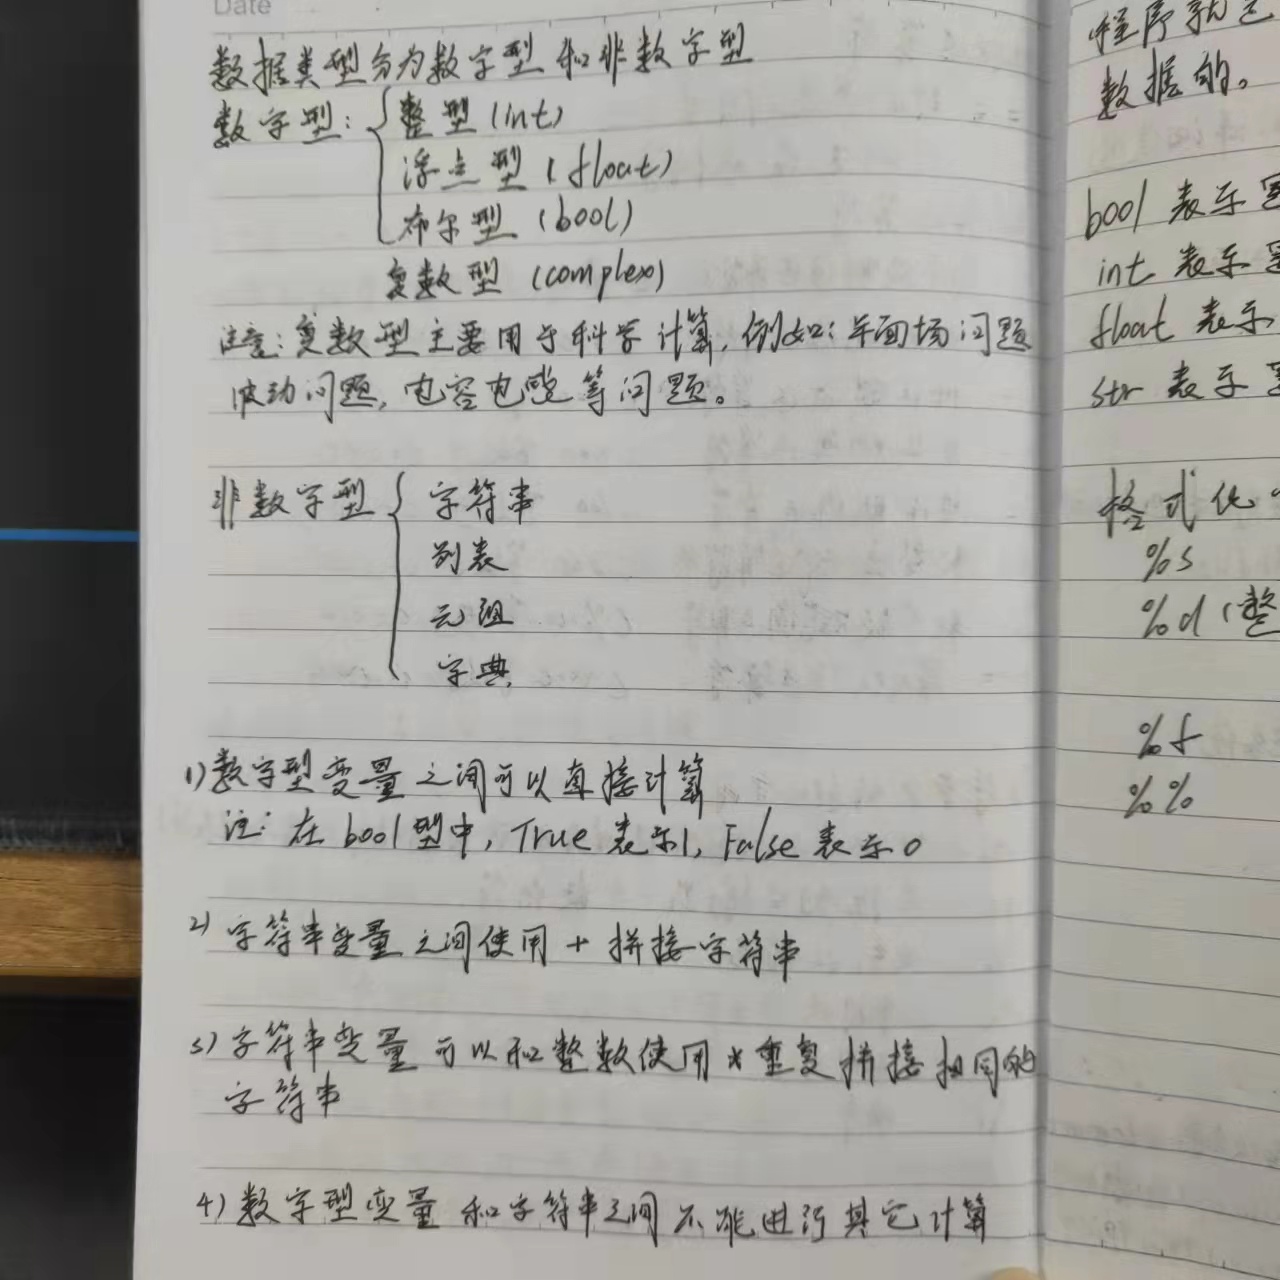 Date
数据类型分为数字型和非数字型
数字型: 整型 (int)
浮点型 (float)
布尔型 (bool)
复数型 (complex)
注意: 复数型主要用于科学计算, 例如: 平面场问题
波动问题, 电容电感等问题。
非数字型 字符串
列表
元组
字典
1) 数字型变量之间可以直接计算
注: 在 bool 型中, True 表示1, False 表示0
2) 字符串变量之间使用 + 拼接字符串
3) 字符串变量可以和整数使用 * 重复拼接相同的
字符串
4) 数字型变量和字符串之间不能进行其它计算
程序就是
数据的。
bool 表示
int 表示
float 表示
str 表示
格式化
%s
%d (整
%f
%%